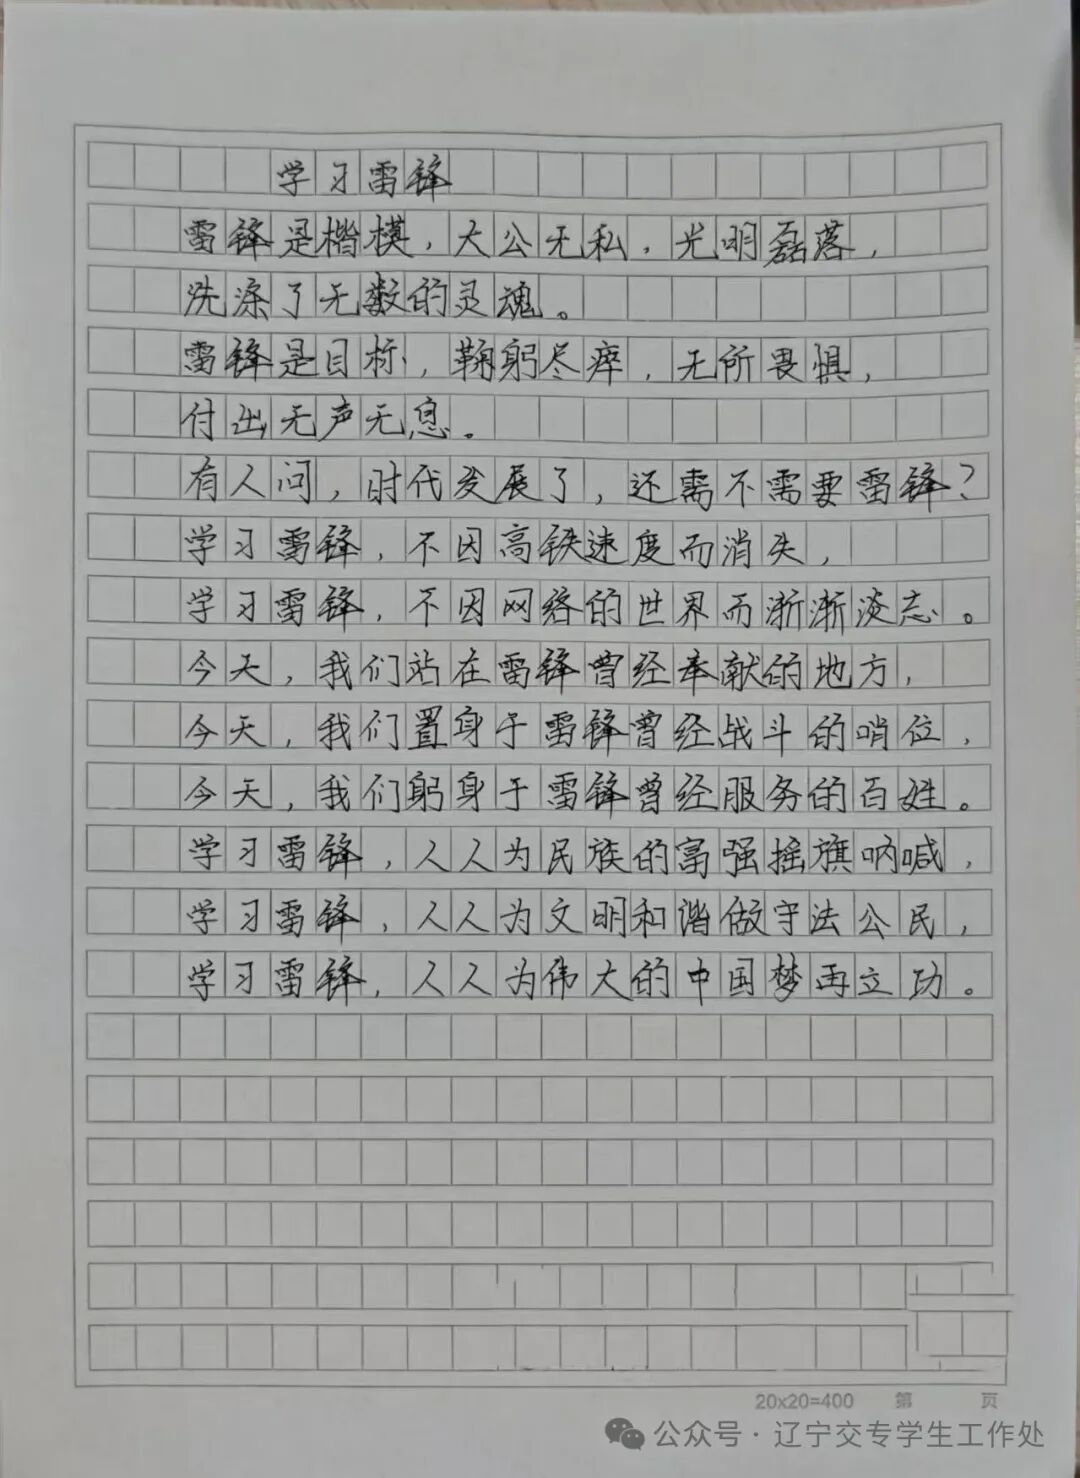 学习雷锋
雷锋是楷模，大公无私，光明磊落，
洗涤了无数的灵魂。
雷锋是目标，鞠躬尽瘁，无所畏惧，
付出无声无息。
有人问，时代发展了，还需不需要雷锋？
学习雷锋，不因高铁速度而消失，
学习雷锋，不因网络的世界而渐渐淡忘。
今天，我们站在雷锋曾经奉献的地方，
今天，我们置身于雷锋曾经战斗的哨位，
今天，我们躬身于雷锋曾经服务的百姓。
学习雷锋，人人为民族的富强摇旗呐喊，
学习雷锋，人人为文明和谐做守法公民，
学习雷锋，人人为伟大的中国梦再立功。
20x20=400 第 页
公众号·辽宁交专学生工作处